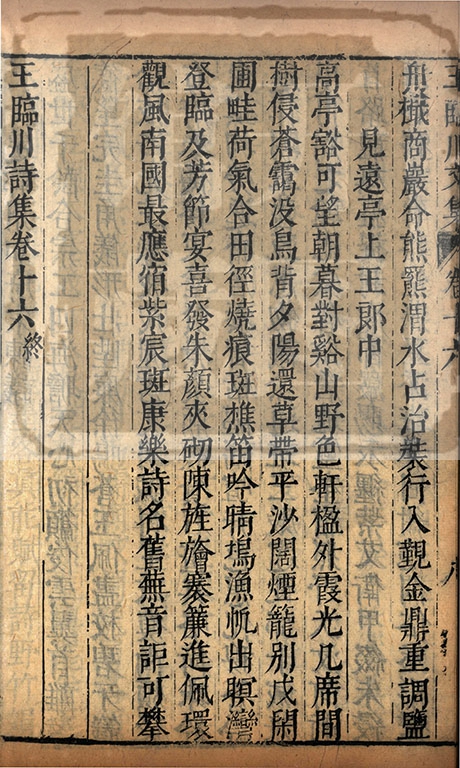 王臨川文集 卷十六 八
舟檝商巖命熊羆渭水占治裝行入覲金鼎重調鹽
見遠亭上王郎中
高亭豁可望朝暮對谿山野色軒楹外霞光几席間
樹侵蒼靄没鳥背夕陽還草帶平沙闊煙籠別戍閑
圃畦荷氣合田徑燒痕斑樵笛吟晴塢漁帆出暝灣
登臨及芳節宴喜發朱顏夾砌陳旌旝褰簾進佩環
觀風南國最應宿紫宸斑康樂詩名舊蕪音詎可攀
王臨川詩集卷十六終